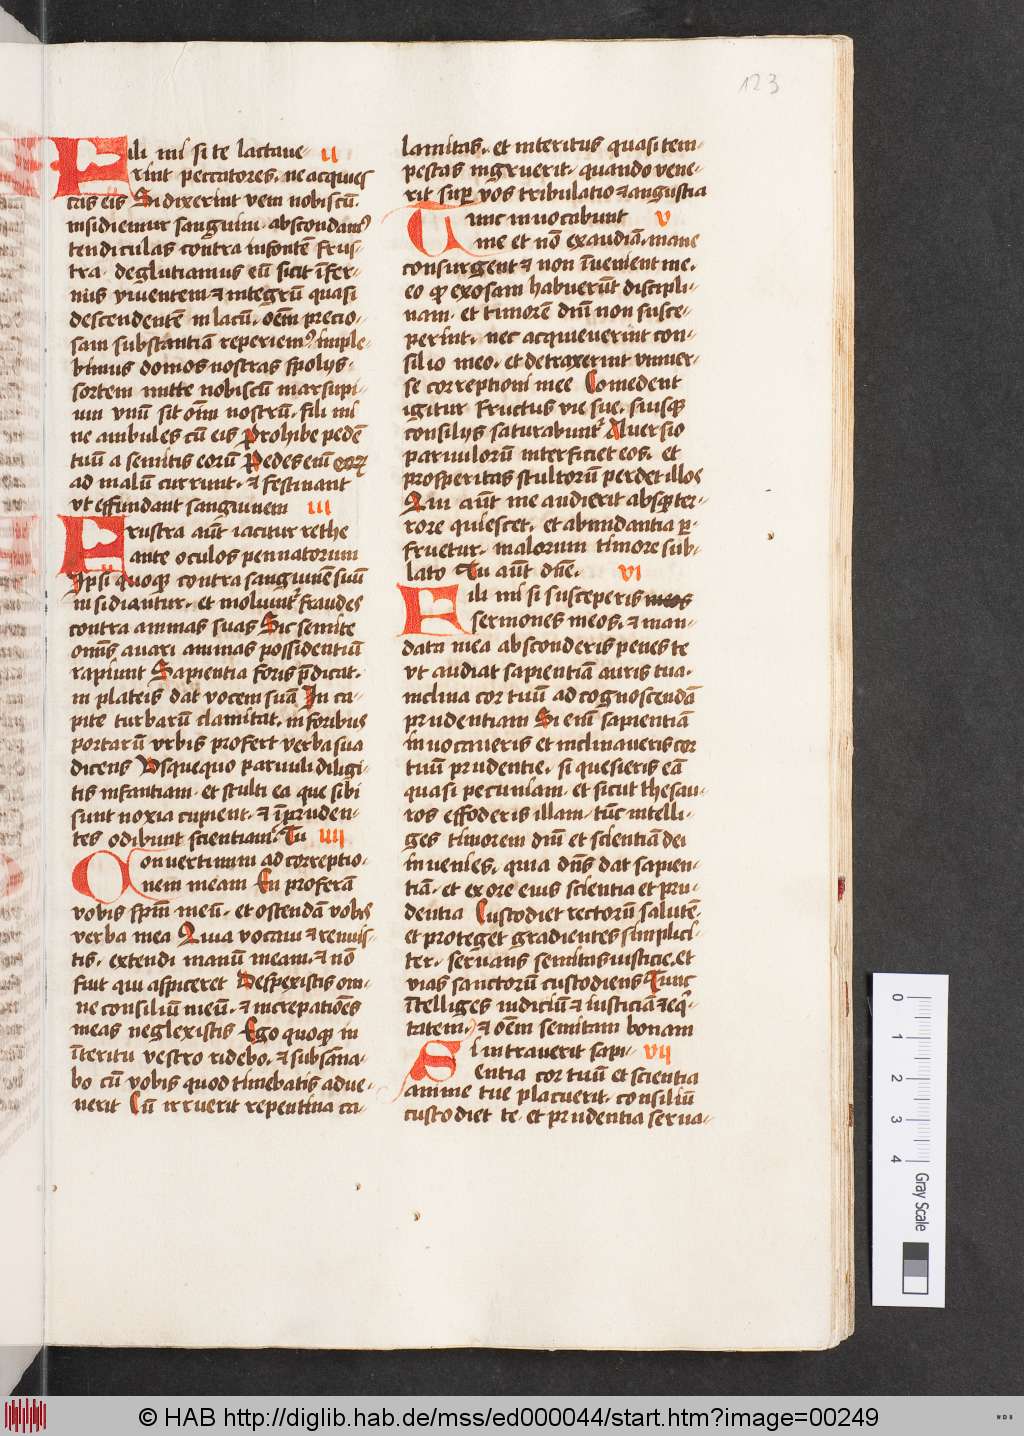 123
Fili mi si te lactaue- ii
rint peccatores. ne acquies
cas eis Si dixerint veni nobiscū.
insidiemur sanguini. abscondamꝰ
tendiculas contra insontē frus-
tra. deglutiamus eū sicut īfer-
nus viventem ⁊ integrū quasi
descendentē in lacū. oēm precio-
sam substantiā reperiemꝰ imple-
bimus domos nostras spolijs.
sortem mitte nobiscū marsupi-
um vnū sit oīm nostrū. fili mi
ne ambules cū eis ꝓhibe pedē
tuū a semitis eorū Pedes eni̅ eoꝝ
ad malū currunt. ⁊ festinant
vt effundant sanguinem iii
Frustra aūt iacitur rethe
ante oculos pennatorum
Ipsi quoqꝫ contra sanguinē suū
insidiantur. et moliunt᷑ fraudes
contra animas suas Sic semite
omīs auari animas possidentiū
rapiunt Sapientia foris p̄dicat.
in plateis dat vocem suā In ca-
pite turbarū clamitat. in foribus
portarū vrbis profert verba sua
dicens Vsquequo paruuli diligi-
tis infantiam. et stulti ea que sibi
sunt noxia cupient. ⁊ īpruden-
tes odibunt scientiam. Tu iiii
Conuertimini ad correptio-
nem meam En proferā
vobis spm̄ meū. et ostendā vobis
verba mea Quia vocaui ⁊ renuis-
tis. extendi manū meam. ⁊ nō
fuit qui aspiceret Despexistis om-
ne consiliū meū. ⁊ increpatiōes
meas neglexistis Ego quoqꝫ in
īteritu vestro ridebo. ⁊ subsāna-
bo cū vobis quod timebatis adue-
nerit Cū irruerit repentina ca-
lamitas. et interitus quasi tem-
pestas ingruerit. quando vene-
rit suꝑ vos tribulatio ⁊ angustia
Tunc inuocabunt v
me et nō exaudiā. mane
consurgent ⁊ non īuenient me.
eo ꝙ exosam habuerūt discipli-
nam. et timorē dn̄i non susce-
perint. nec acquieuerint con-
silio meo. et detraxerint vniuer-
se correptioni mee Comedent
igitur fructus vie sue. suisqꝫ
consilijs saturabunt᷑ Auersio
paruulorū interficiet eos. et
prosperitas stultorū perdet illos
Qui aūt me audierit absqꝫ ter-
rore quiescet. et abundantia ꝑ-
fruetur. malorum timore sub-
lato Tu aūt dn̄e. vi
Fili mi si susceperis meos
sermones meos. ⁊ man-
data mea absconderis penes te
vt audiat sapientiā auris tua.
inclina cor tuū ad cognoscendā
prudentiam Si eni̅ sapientiā
inuocaueris et inclinaueris cor
tuū prudentie. si quesieris eā
quasi pecuniam. et sicut thesau-
ros effoderis illam. tūc intelli-
ges timorem dn̄i et scientiā dei
inuenies. quia dn̄s dat sapien-
tiā. et ex ore eius scientia et pru-
dentia Custodiet rectorū salutē.
et proteget gradientes simplici-
ter. seruans semitas iusticie. et
vias sanctorū custodiens Tunc
ītelliges iudiciū ⁊ iusticiā ⁊ eq̄-
tatem. ⁊ oēm semitam bonam
Si intrauerit sapi- vii
entia cor tuū et scientia
anime tue placuerit. consiliū
custodiet te. et prudentia serua-
0 1 2 3 4 Gray Scale
© HAB http://diglib.hab.de/mss/ed000044/start.htm?image=00249